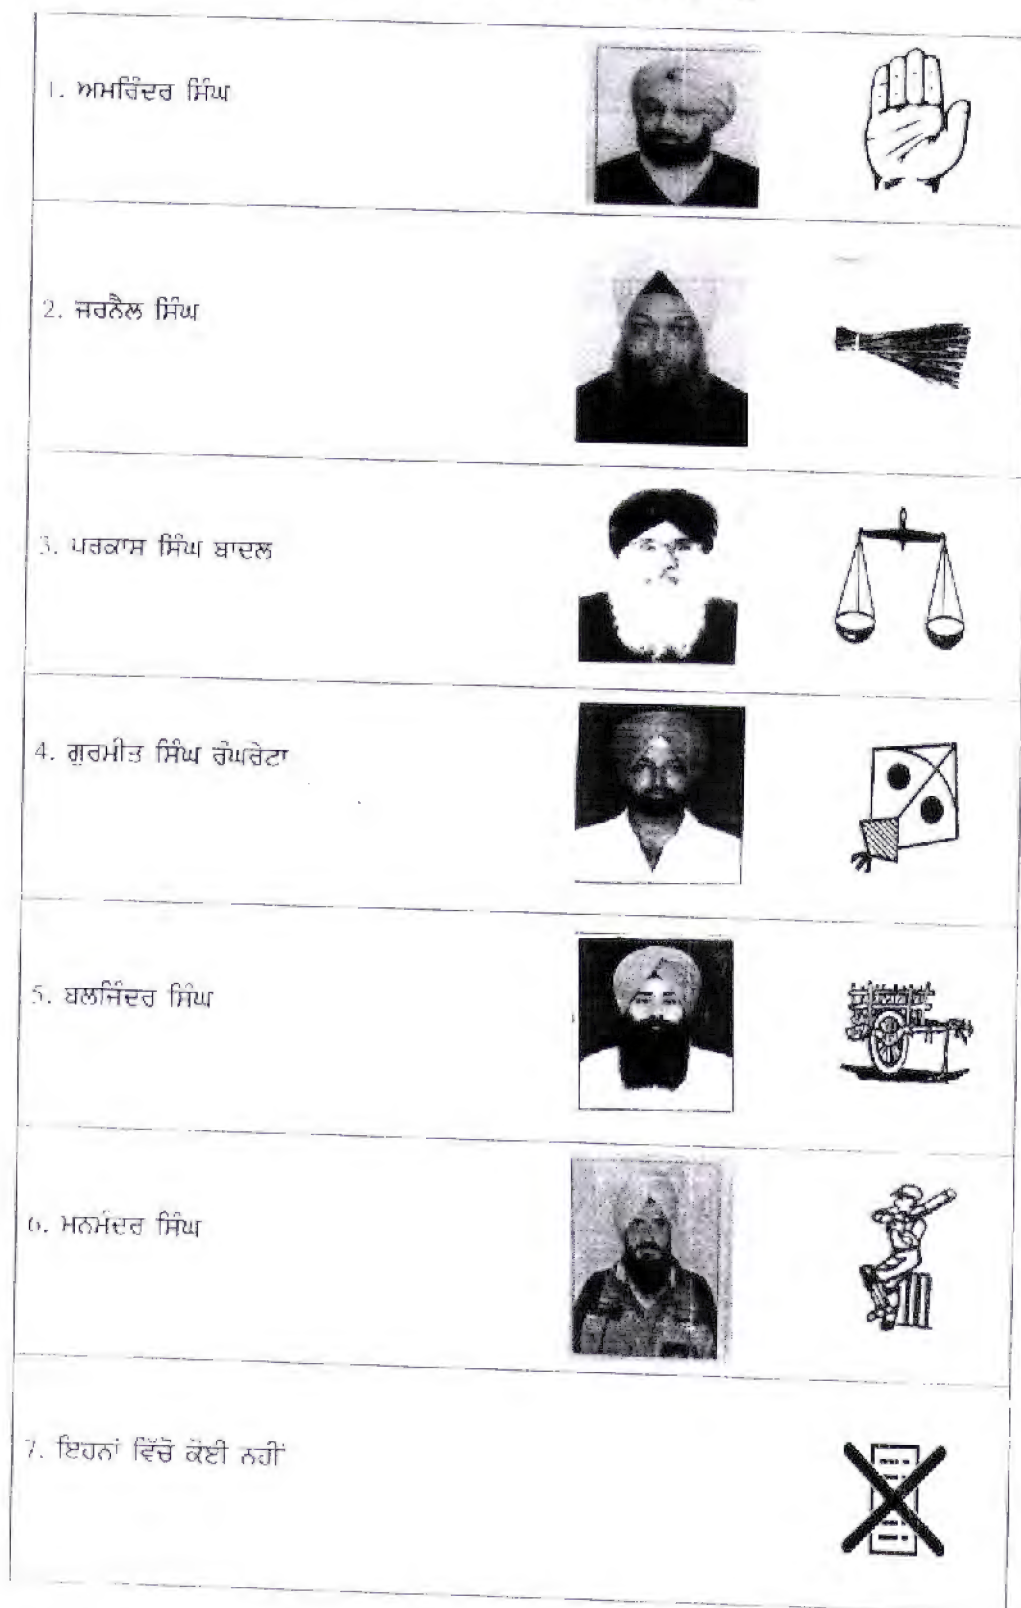 1. ਅਮਰਿੰਦਰ ਸਿੰਘ
2. ਜਰਨੈਲ ਸਿੰਘ
3. ਪਰਕਾਸ਼ ਸਿੰਘ ਬਾਦਲ
4. ਗੁਰਮੀਤ ਸਿੰਘ ਰੰਘਰੇਟਾ
5. ਬਲਜਿੰਦਰ ਸਿੰਘ
6. ਮਨਮੰਦਰ ਸਿੰਘ
7. ਇਹਨਾਂ ਵਿੱਚੋਂ ਕੋਈ ਨਹੀਂ